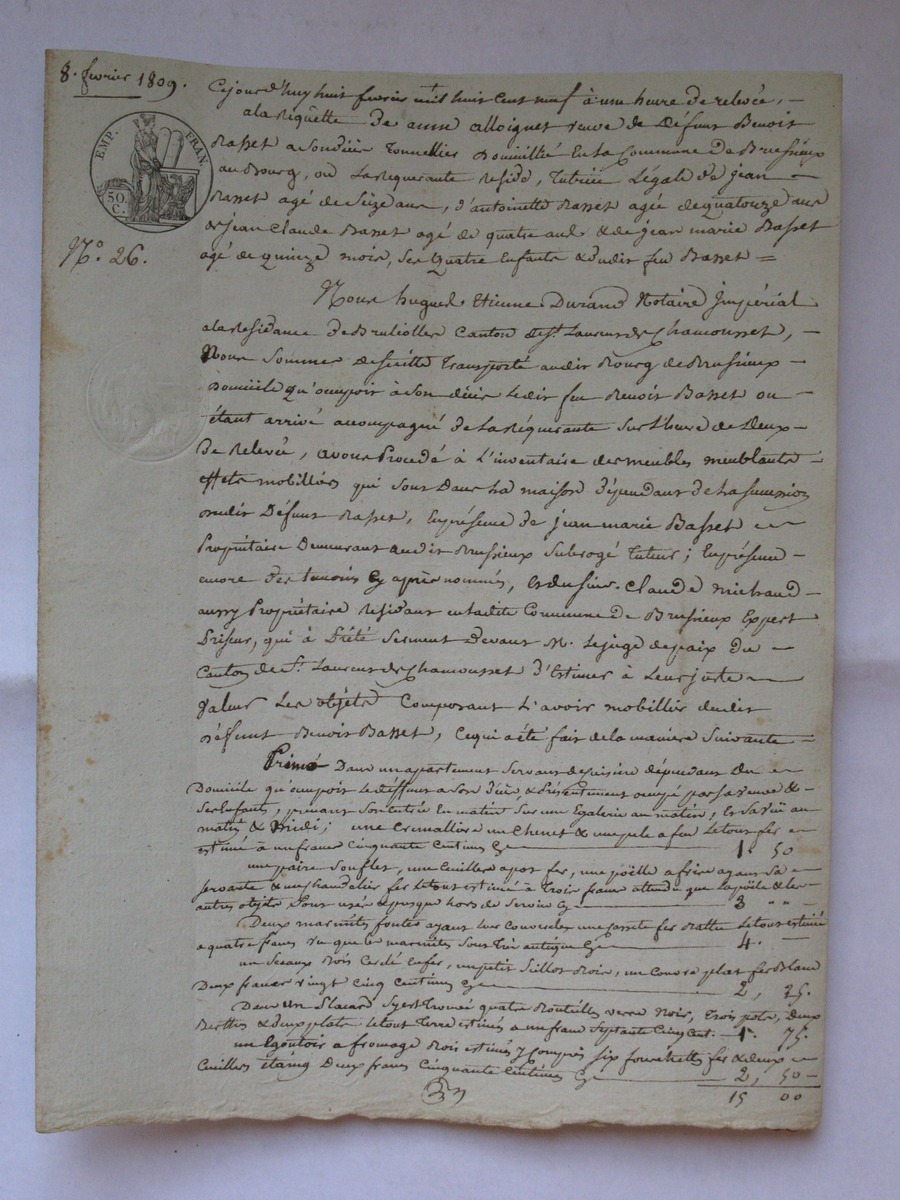 8. fevrier 1809.
EMP. FRAN.
50. C.
N.º 26.
Cejourd'huy huit fevrier mil huit cent neuf à une heure de relevée, —
ala Requête de anne alloignet veuve de Défunt Benoit
Basset a son décès Tonnellier Domicillié En la Commune de Brussieux
au Bourg, ou la Requerante Reside, Tutrice Légale de jean —
Basset agé de Seize ans, d'antoinette Basset agée de quatorze ans
de jean Claude Basset agé de quatre ans & de jean marie Basset
agé de quinze mois, ses quatre Enfants & dudit feu Basset =
Nous hugues Etienne Durand Notaire Impérial
ala Residance de Bruliolles Canton de S.t Laurent de Chamousset, —
Nous Sommes de suitte Transporté audit Bourg de Brussieux —
Domicile qu'occupoit à Son décès Ledit feu Benoit Basset ou —
étant arrivé accompagné de la Réquerante sur l'heure de Deux —
De Relevée, avons Procedé à L'inventaire des meubles meublants —
effets mobilliers qui sont Dans La maison dépendant de La succession
dudit Défunt Basset, En présence de jean marie Basset —
Propriétaire Demeurant audit Brussieux Subrogé Tuteur; En présence —
encore des temoins Cy après nommés, Et du sieur Claude michaud —
aussy Propriétaire Résidant en ladite Commune de Brussieux Expert
Priseur, qui à Prêté Serment Devant M. Le juge de paix du —
Canton de S.t Laurent de Chamousset d'Estimer à Leur juste —
Valeur Les objets Composant L'avoir mobillier dudit
Défunt Benoit Basset, Ce qui a été fait de la maniere Suivante —
Primo Dans un apartement servant de cuisine dépendant Du —
Domicile qu'occupoit le deffunt a son décès, & présentement occupé par sa veuve &
Ses Enfants, prenant Son entrée En matin Sur une Egalerie au matin, Et sa vue au
matin & midi; une Cremallière un Chenet & une pele a feu Le tout fer —
estimé à un franc Cinquante Centimes Cy — 1. 50
une paire Soufflet, une Cuillere a pot fer, une poëlle a frire ayant Sa —
servante & un chandelier fer Le tout estimé à Trois francs attendu que La poële & les —
autres objets Sont usés & presque hors de Service Cy — 3 " " —
Deux marmites fontes ayant leur Couvercles une fer Battu Le tout estimé
a quatre francs vu que les marmites sont très antique Cy — 4. —
un Seaux Bois Cerclé En fer, un petit Seillot Bois, un Couvre plat fer Blanc
Deux francs vingt Cinq Centimes Cy — 2, 25.
Dans un Placard Sy est Trouvé quatre Bouteilles verre Noir, Trois pots, Deux
Berthes & deux plats Le tout Terre estimés a un franc Septante Cinq Cent. — 1. 75.
un Egoutoir a fromage Bois estimés y Compris Six fourchettes fer & deux —
Cuillers étaing Deux francs Cinquante Centimes Cy — 2, 50 —
15 00